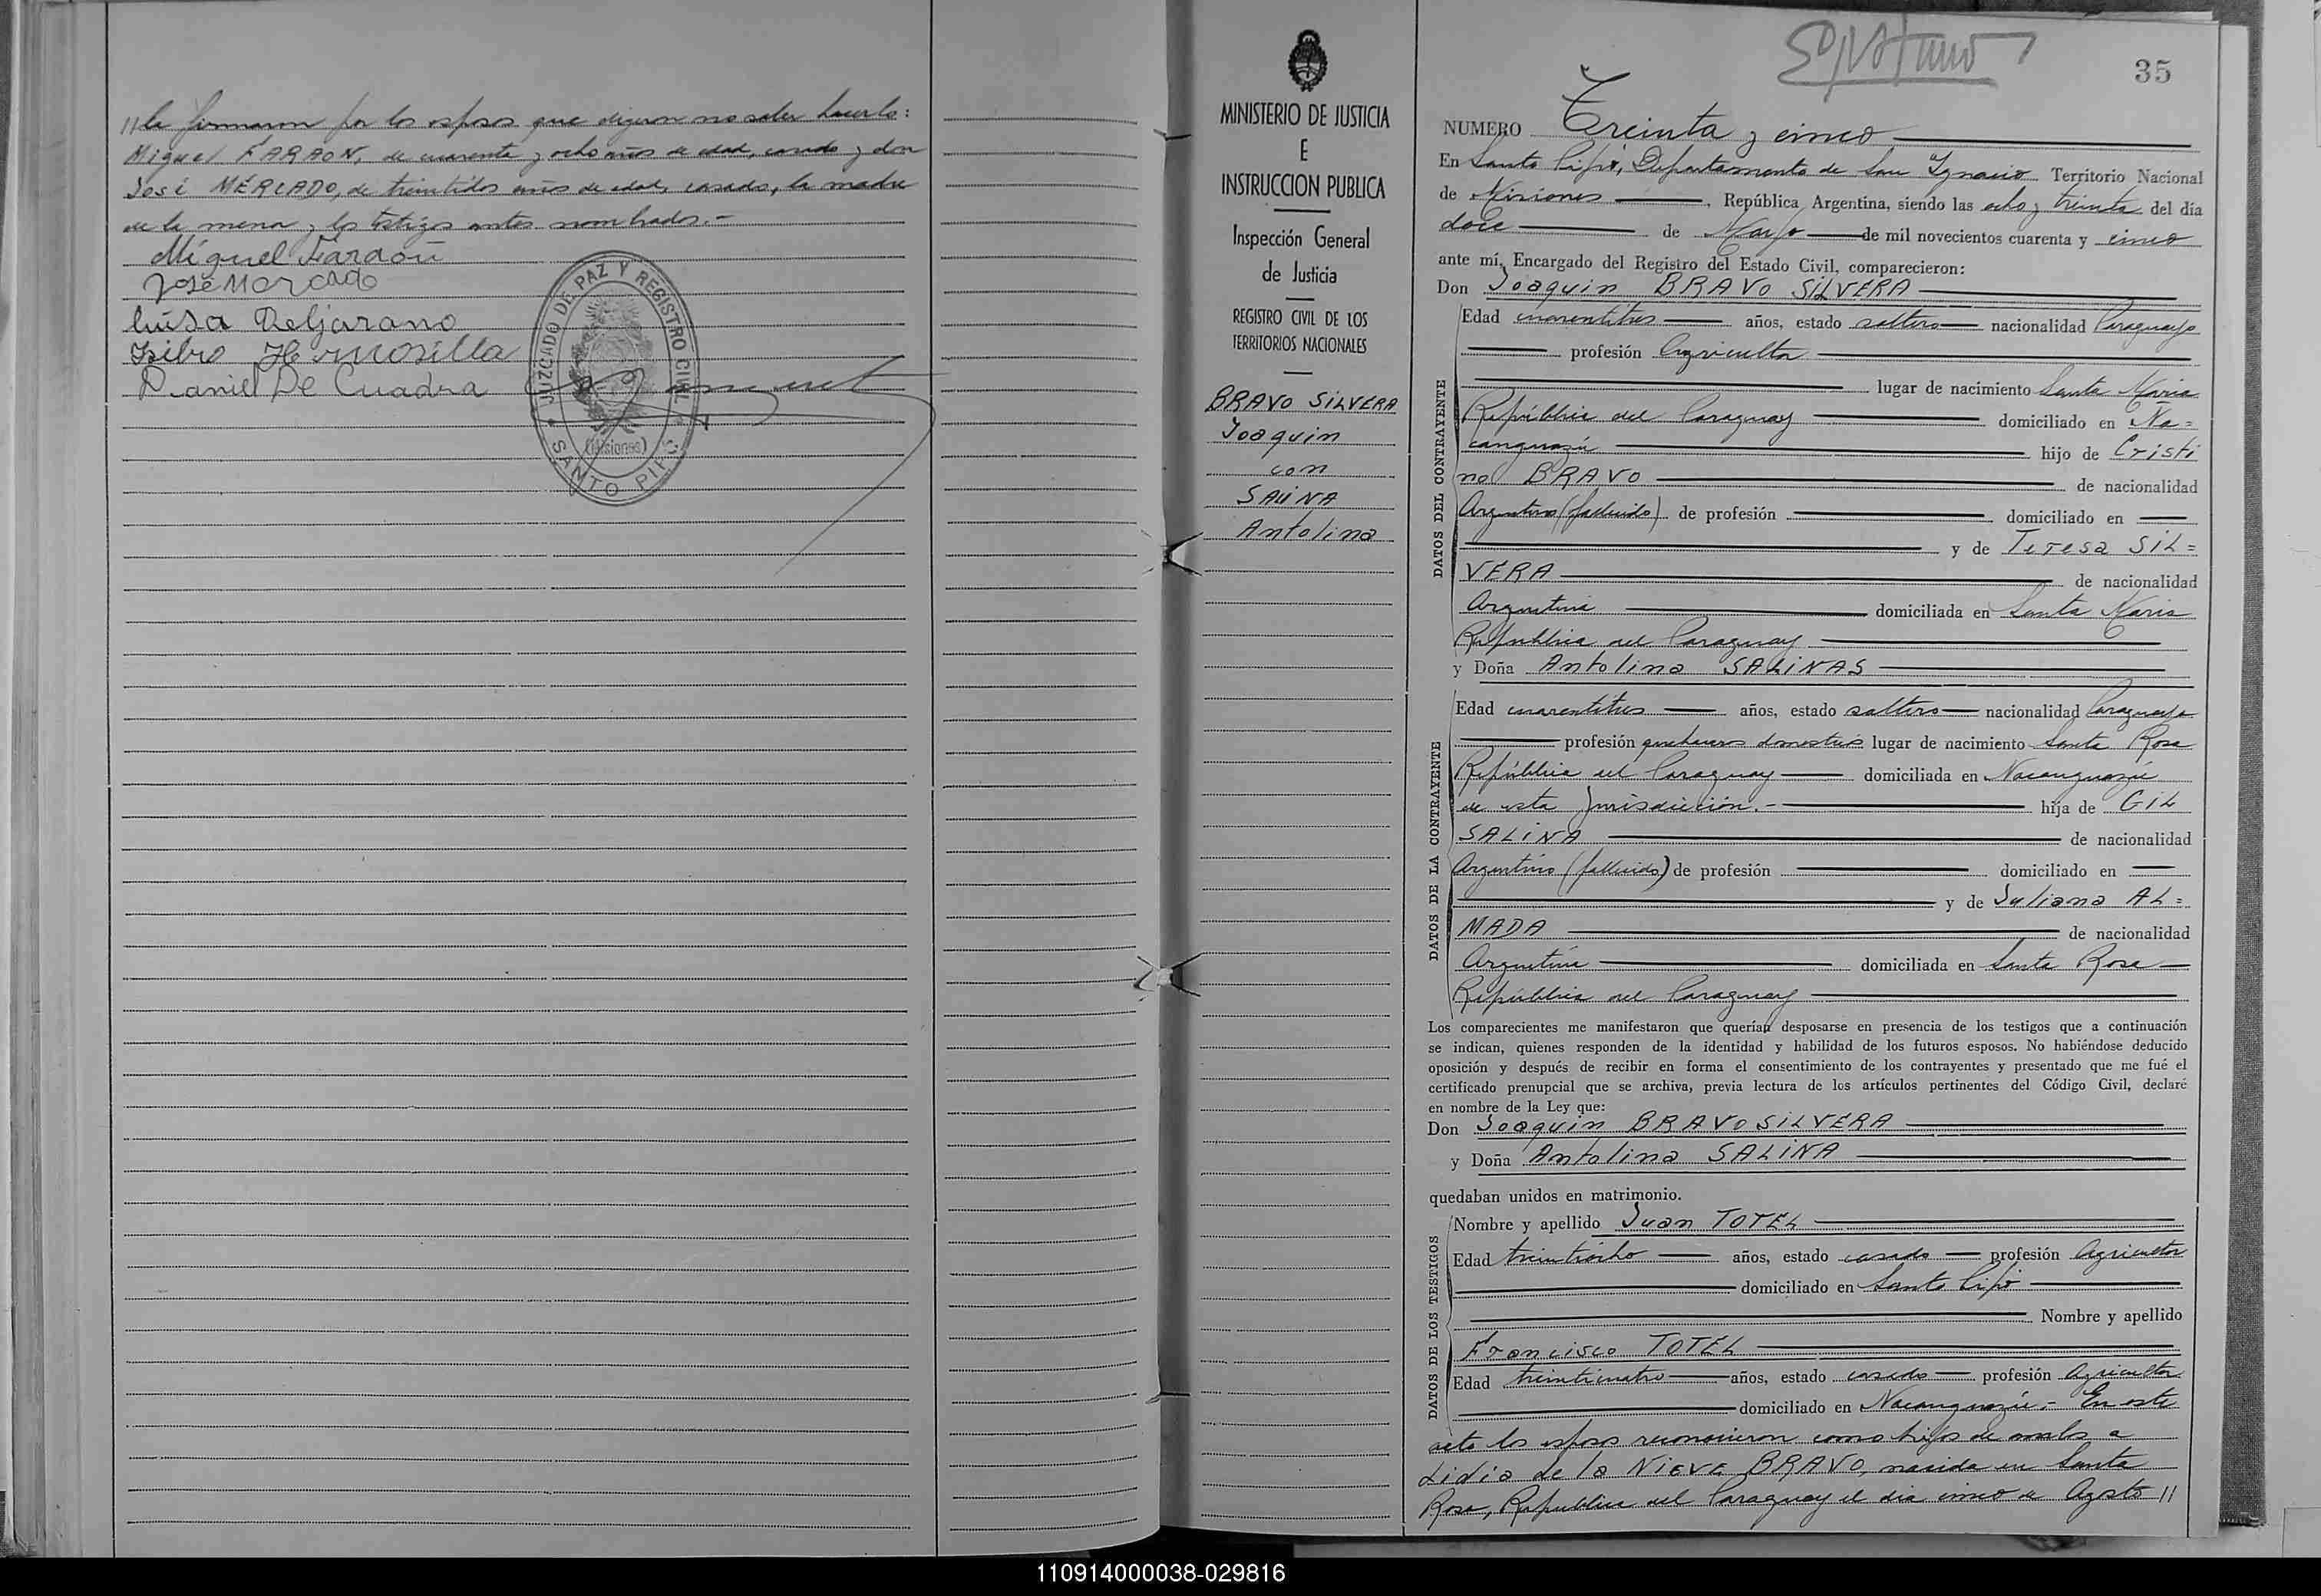 //la firmaron por los esposos que dijeron no saber hacerlo:
Miguel FARAON, de cuarenta y ocho años de edad, casado y don
José MERCADO, de treintidos años de edad, casado, la madre
de la menor y los testigos antes nombrados.-
Miguel Faraón
José Mercado
Luisa Deljarano
Isibro Hermosilla
Daniel De Cuadra
JUZGADO DE PAZ Y REGISTRO CIVIL
(Misiones)
SANTO PIPO
MINISTERIO DE JUSTICIA
E
INSTRUCCION PUBLICA
Inspección General
de Justicia
REGISTRO CIVIL DE LOS
TERRITORIOS NACIONALES
BRAVO SILVERA
Joaquin
con
SALINA
Antolina
35
NUMERO Treinta y cinco
En Santo Pipó, Departamento de San Ignacio Territorio Nacional
de Misiones, República Argentina, siendo las ocho y treinta del día
doce de Marzo de mil novecientos cuarenta y cinco
ante mí, Encargado del Registro del Estado Civil, comparecieron:
Don Joaquin BRAVO SILVERA
DATOS DEL CONTRAYENTE
Edad cuarentitres años, estado soltero nacionalidad Paraguayo
profesión Agricultor
lugar de nacimiento Santa Maria
República del Paraguay domiciliado en Ña=
canguazú hijo de Cristi
no BRAVO de nacionalidad
Argentino (fallecido) de profesión domiciliado en
y de Teresa SIL=
VERA de nacionalidad
Argentina domiciliada en Santa Maria
República del Paraguay
y Doña Antolina SALINAS
DATOS DE LA CONTRAYENTE
Edad cuarentitres años, estado soltera nacionalidad Paraguaya
profesión quehaceres domesticos lugar de nacimiento Santa Rosa
República del Paraguay domiciliada en Ñacanguazú
de esta Jurisdicción.- hija de GIL
SALINA de nacionalidad
Argentino (fallecido) de profesión domiciliado en
y de Juliana AL=
MADA de nacionalidad
Argentina domiciliada en Santa Rosa
República del Paraguay
Los comparecientes me manifestaron que querían desposarse en presencia de los testigos que a continuación
se indican, quienes responden de la identidad y habilidad de los futuros esposos. No habiéndose deducido
oposición y después de recibir en forma el consentimiento de los contrayentes y presentado que me fué el
certificado prenupcial que se archiva, previa lectura de los artículos pertinentes del Código Civil, declaré
en nombre de la Ley que:
Don Joaquin BRAVO SILVERA
y Doña Antolina SALINA
quedaban unidos en matrimonio.
DATOS DE LOS TESTIGOS
Nombre y apellido Juan TOTEL
Edad treintiocho años, estado casado profesión Agricultor
domiciliado en Santo Pipó
Nombre y apellido
Francisco TOTEL
Edad treinticuatro años, estado casado profesión Agricultor
domiciliado en Ñacanguazú.- En este
acto los esposos reconocieron como hijos de ambos a
Lidia de la NIEVE BRAVO, nacida en Santa
Rosa, República del Paraguay el dia cinco de Agosto //
110914000038-029816